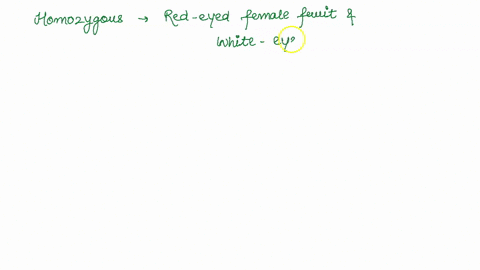 Homozygous → Red-eyed female fruit &
White - eye